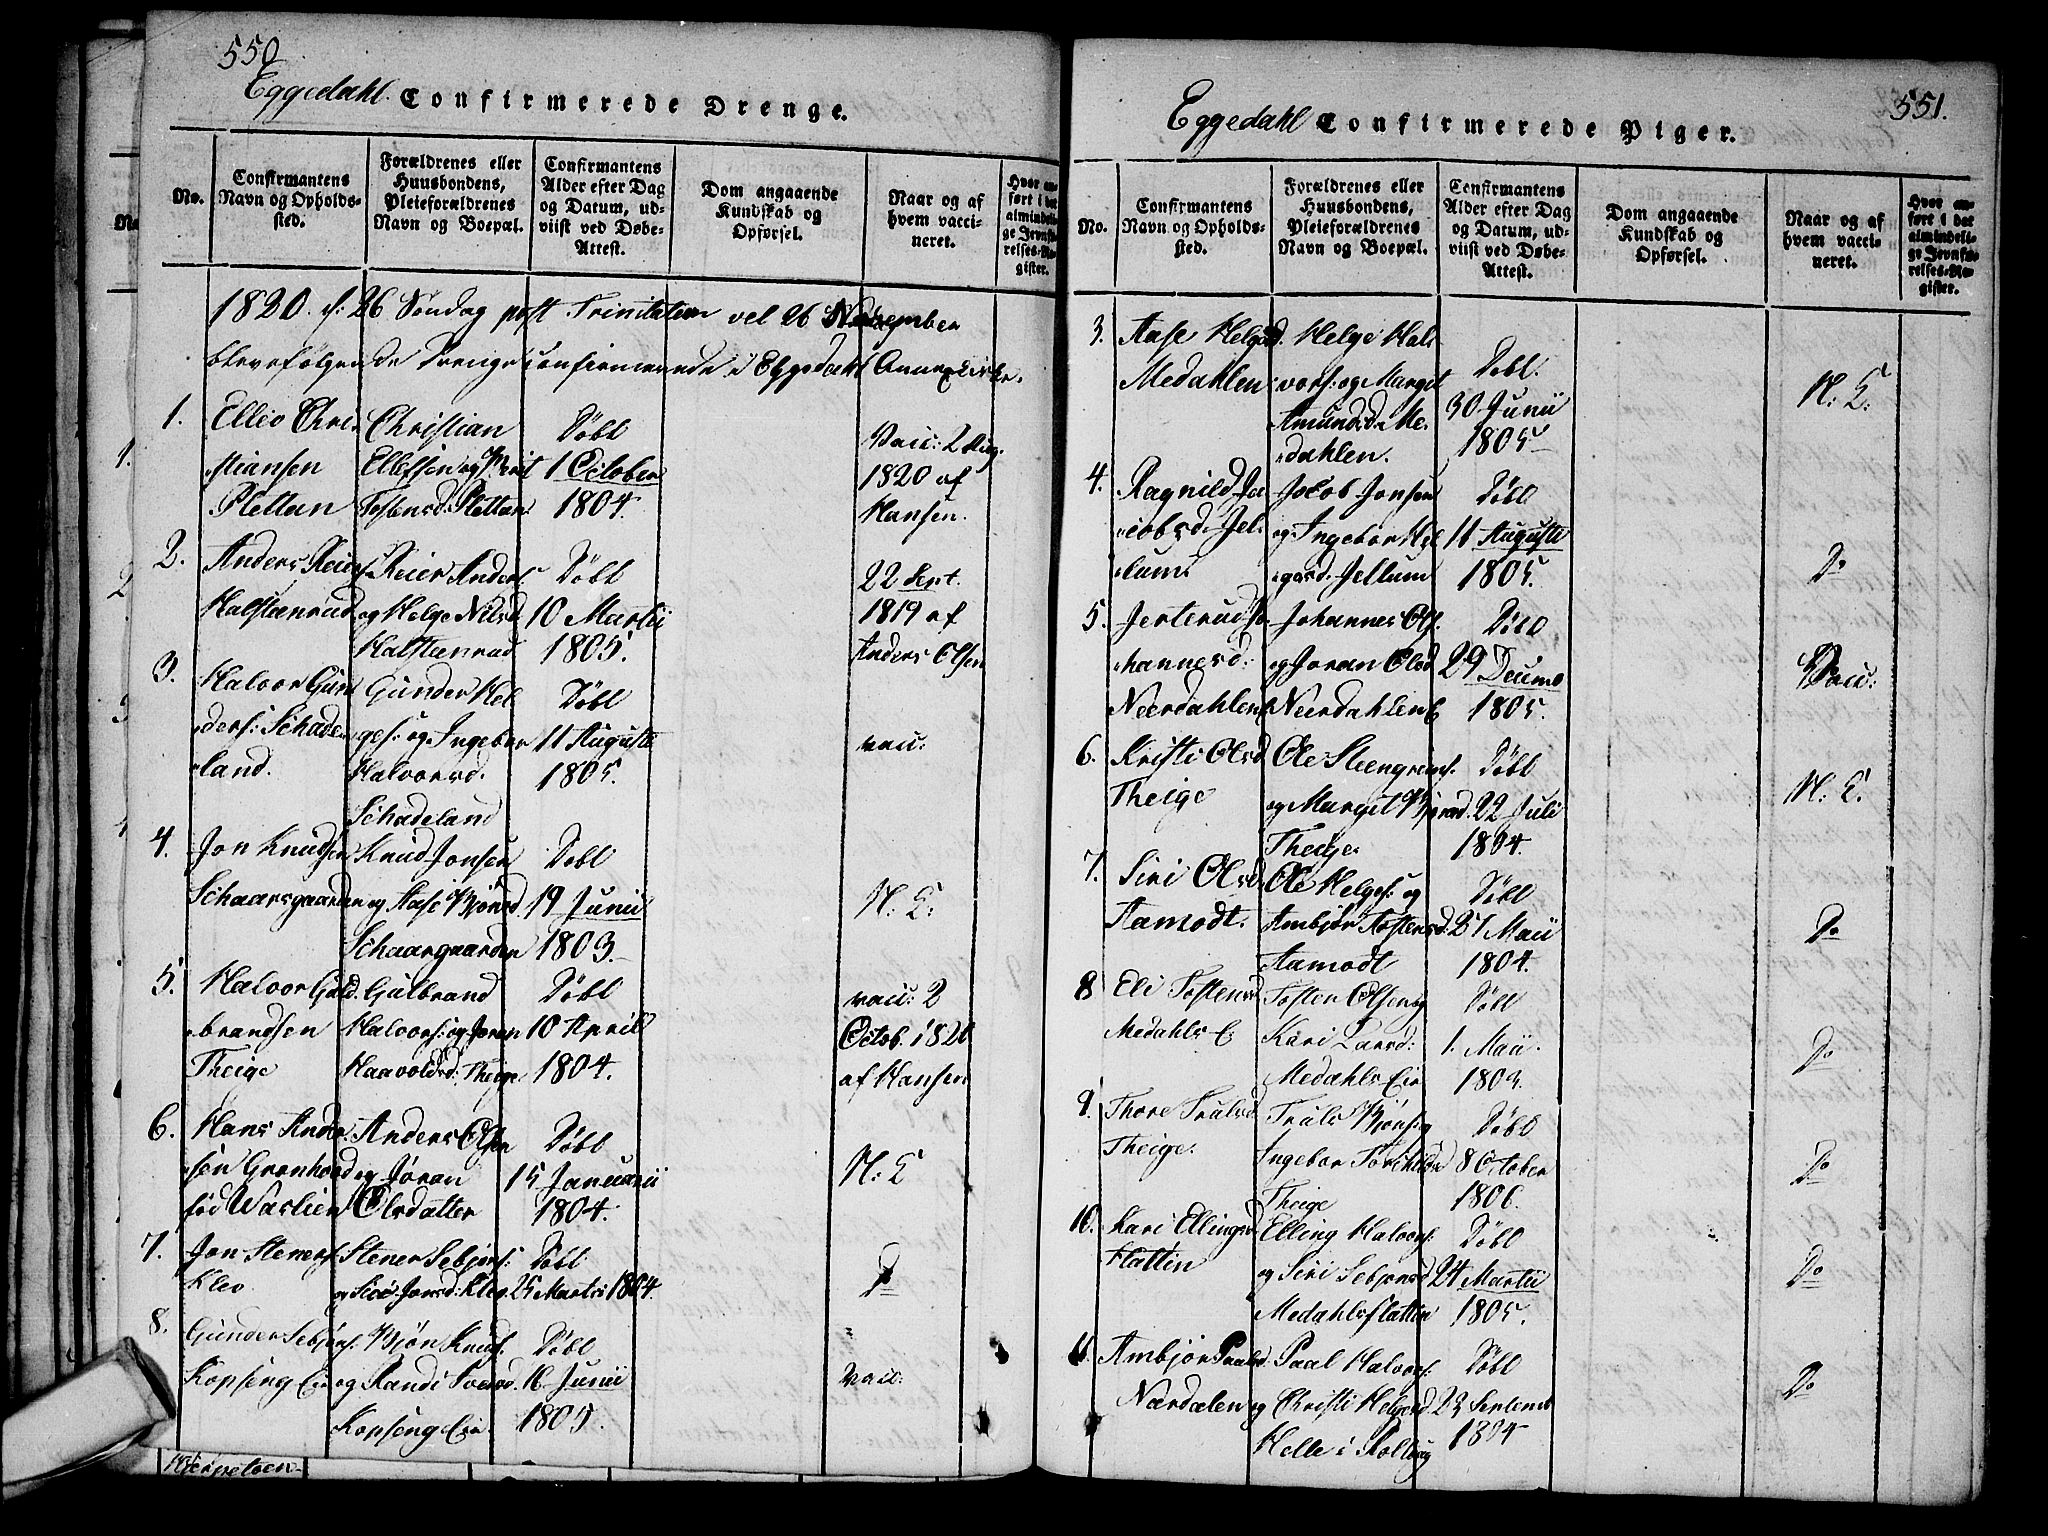 550
Eggedahl Confirmerede Drenge.
No.
Confirmantens Navn og Opholds-sted.
Forældrenes eller Huusbondens, Pleieforældrenes Navn og Boepæl.
Confirmantens Alder efter Dag og Datum, ud-viist ved Døbe-Attest.
Dom angaaende Kundskab og Opførsel.
Naar og af hvem vacci-neret.
Hvor an-ført i det almindeli-ge Jevnfø-relses-Re-gister.
1820. d: 26 Søndag post Trinitatem vel 26 November
bleve følgende Drenge confirmerede i Eggedahl Annexkirke.
1.
Elleo Chri-
stiansen
Plettan
Christian
Ellefsen og Berit
Tostensd. Plettan
Døbt
1 October
1804.
Vacc: 2 Aug.
1820 af
Hansen.
2.
Anders Reiers.
Halstenrud
Reier Anders.
og Helge Nilsd
Halstenrud
Døbt
10 Martii
1805.
22 Sept.
1819 af
Anders Olsen
3.
Halvor Gun
ders: Schade
land.
Gunder Hel
ges: og Ingebor
Halvorsd.
Schadeland
Døbt
11 Augusti
1805.
vacc:
4.
Jon Knudsen
Schaarsgaarden
Knud Jonsen
og Aase Bjørnsd
Schaargaarden
Døbt
19 Junii
1803.
N: E:
5.
Halvor Guld
brandsen
Theige
Gulbrand
Halvors: og Joran
Haavoldsd: Theige
Døbt
10 April
1804.
vacc: 2
Octob. 1820
af Hansen
6.
Hans Ander
sen Grønhovd
fød Waslien
Anders Olsen
og Jøran
Olsdatter
Døbt
15 Januarii
1804.
N: E
7.
Jon Steners:
Kleo
Stener Sebjørs:
og Siri Jonsd: Kleo
Døbt
25 Martii 1804.
Do
8.
Gunder Sebjørs.
Kopseng Eie
Bjøn Knuds.
og Randi Svensd.
Kopseng Eie.
Døbt
16 Junii
1805.
vacc:
551.
Eggedahl Confirmerede Piger.
No.
Confirmantens Navn og Opholds-sted.
Forældrenes eller Huusbondens, Pleieforældrenes Navn og Boepæl.
Confirmantens Alder efter Dag og Datum, ud-viist ved Døbe-Attest.
Dom angaaende Kundskab og Opførsel.
Naar og af hvem vacci-neret.
Hvor an-ført i det almindeli-ge Jevnfø-relses-Re-gister.
3.
Aase Helgesd.
Medahlen
Helge Hal-
vors: og Marget
Amundsd. Me
dahlen.
Døbt.
30 Junii
1805
N: E:
4.
Ragnild Ja
cobsd. Jel
lum
Jacob Jonsen
og Ingebor Hel
gesd. Jellum
Døbt
11 Augusti
1805.
Do
5.
Johannes Ols.
mannesd:
Neerdahlen
og Joran Olsd
Neerdahlen
Døbt
29 Decemb
1805.
Vacc:
6.
Kristi Olsd
Theige
Ole Steengrims.
og Marget Bjørnsd.
Theige
Døbt
22 Juli
1804.
N: E.
7.
Siri Olsd
Aamodt.
Ole Helges: og
Ambjør Tostensd.
Aamodt
Døbt
27 Maii
1804.
Do
8
Eli Tostensd
Medahls E
Tosten Olsen og
Kari Larsd:
Medahls Eie
Døbt
1. Maii.
1803.
Do
9.
Thore Trulsd
Theige.
Truls Bjøns: og
Ingebor Torkildsd
Theige
Døbt
8 October
1806.
Do
10.
Kari Ellingsd
Flattin
Elling Halvors.
og Siri Sebjønsd
Medahlsflattin
Døbt
24 Martii
1805.
Do
11.
Ambjør Paalsd.
Nærdalen
Paal Halvors:
og Christi Helgesd
Helle i Rolloug
Døbt
23 Septemb
1804
Do